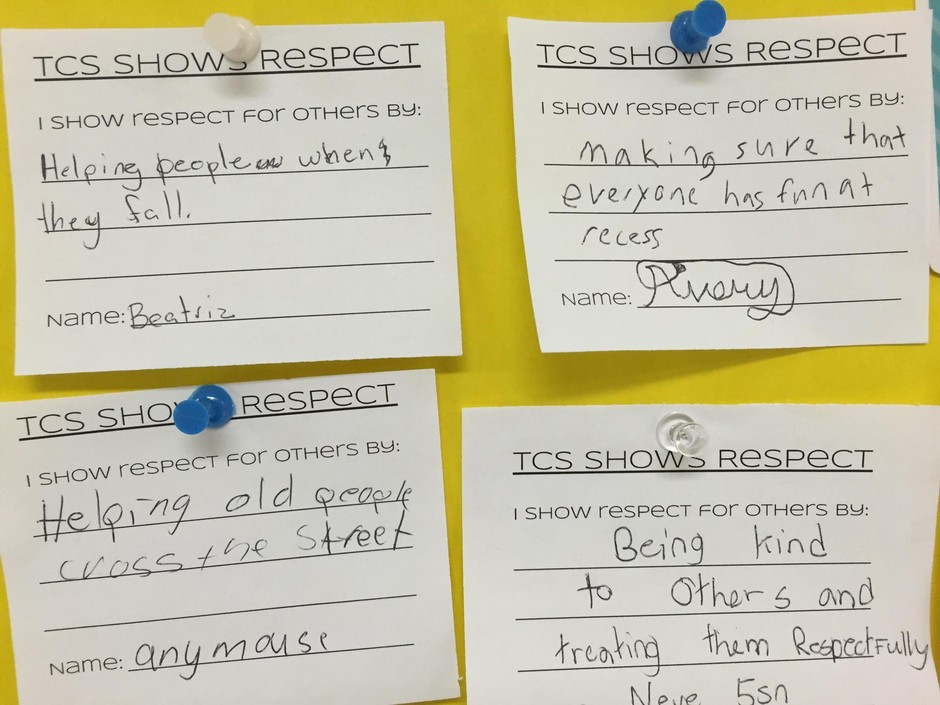 TCS SHOWS RESPECT
I SHOW RESPECT FOR OTHERS BY:
Helping people when
they fall.
Name: Beatriz
TCS SHOWS RESPECT
I SHOW RESPECT FOR OTHERS BY:
making sure that
everyone has fun at
recess
Name:
TCS SHOWS RESPECT
I SHOW RESPECT FOR OTHERS BY:
Helping old people
cross the Street
Name: anymouse
TCS SHOWS RESPECT
I SHOW RESPECT FOR OTHERS BY:
Being kind
to Others and
treating them Respectfully
Neve 5sn